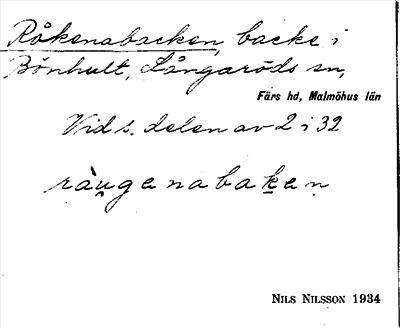 Råkenabacken, backe i
Bönhult, Långaröds sn,
Färs hd, Malmöhus län
Vid s. delen av 2 i 32
ràu̯genabaken
NILS NILSSON 1934